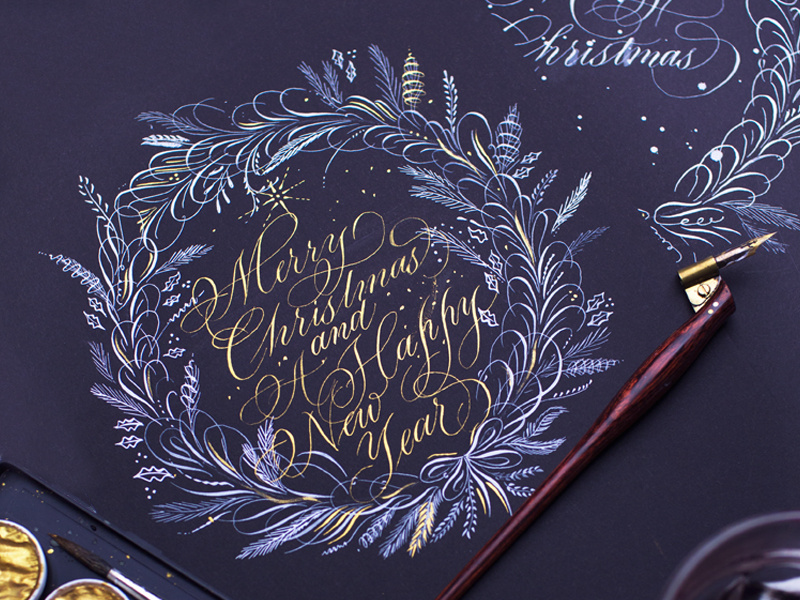 Merry
Christmas
and
A Happy
New
Year
Christmas